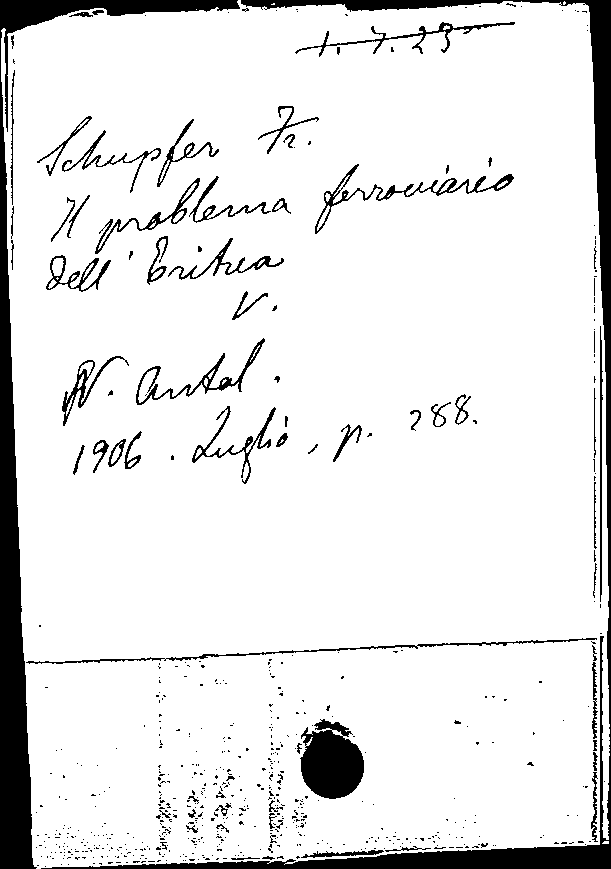 1. 7. 23
Schupfer Fr.
Il problema ferroviario
dell' Eritrea
V.
N. Antol.
1906. Luglio, p. 288.